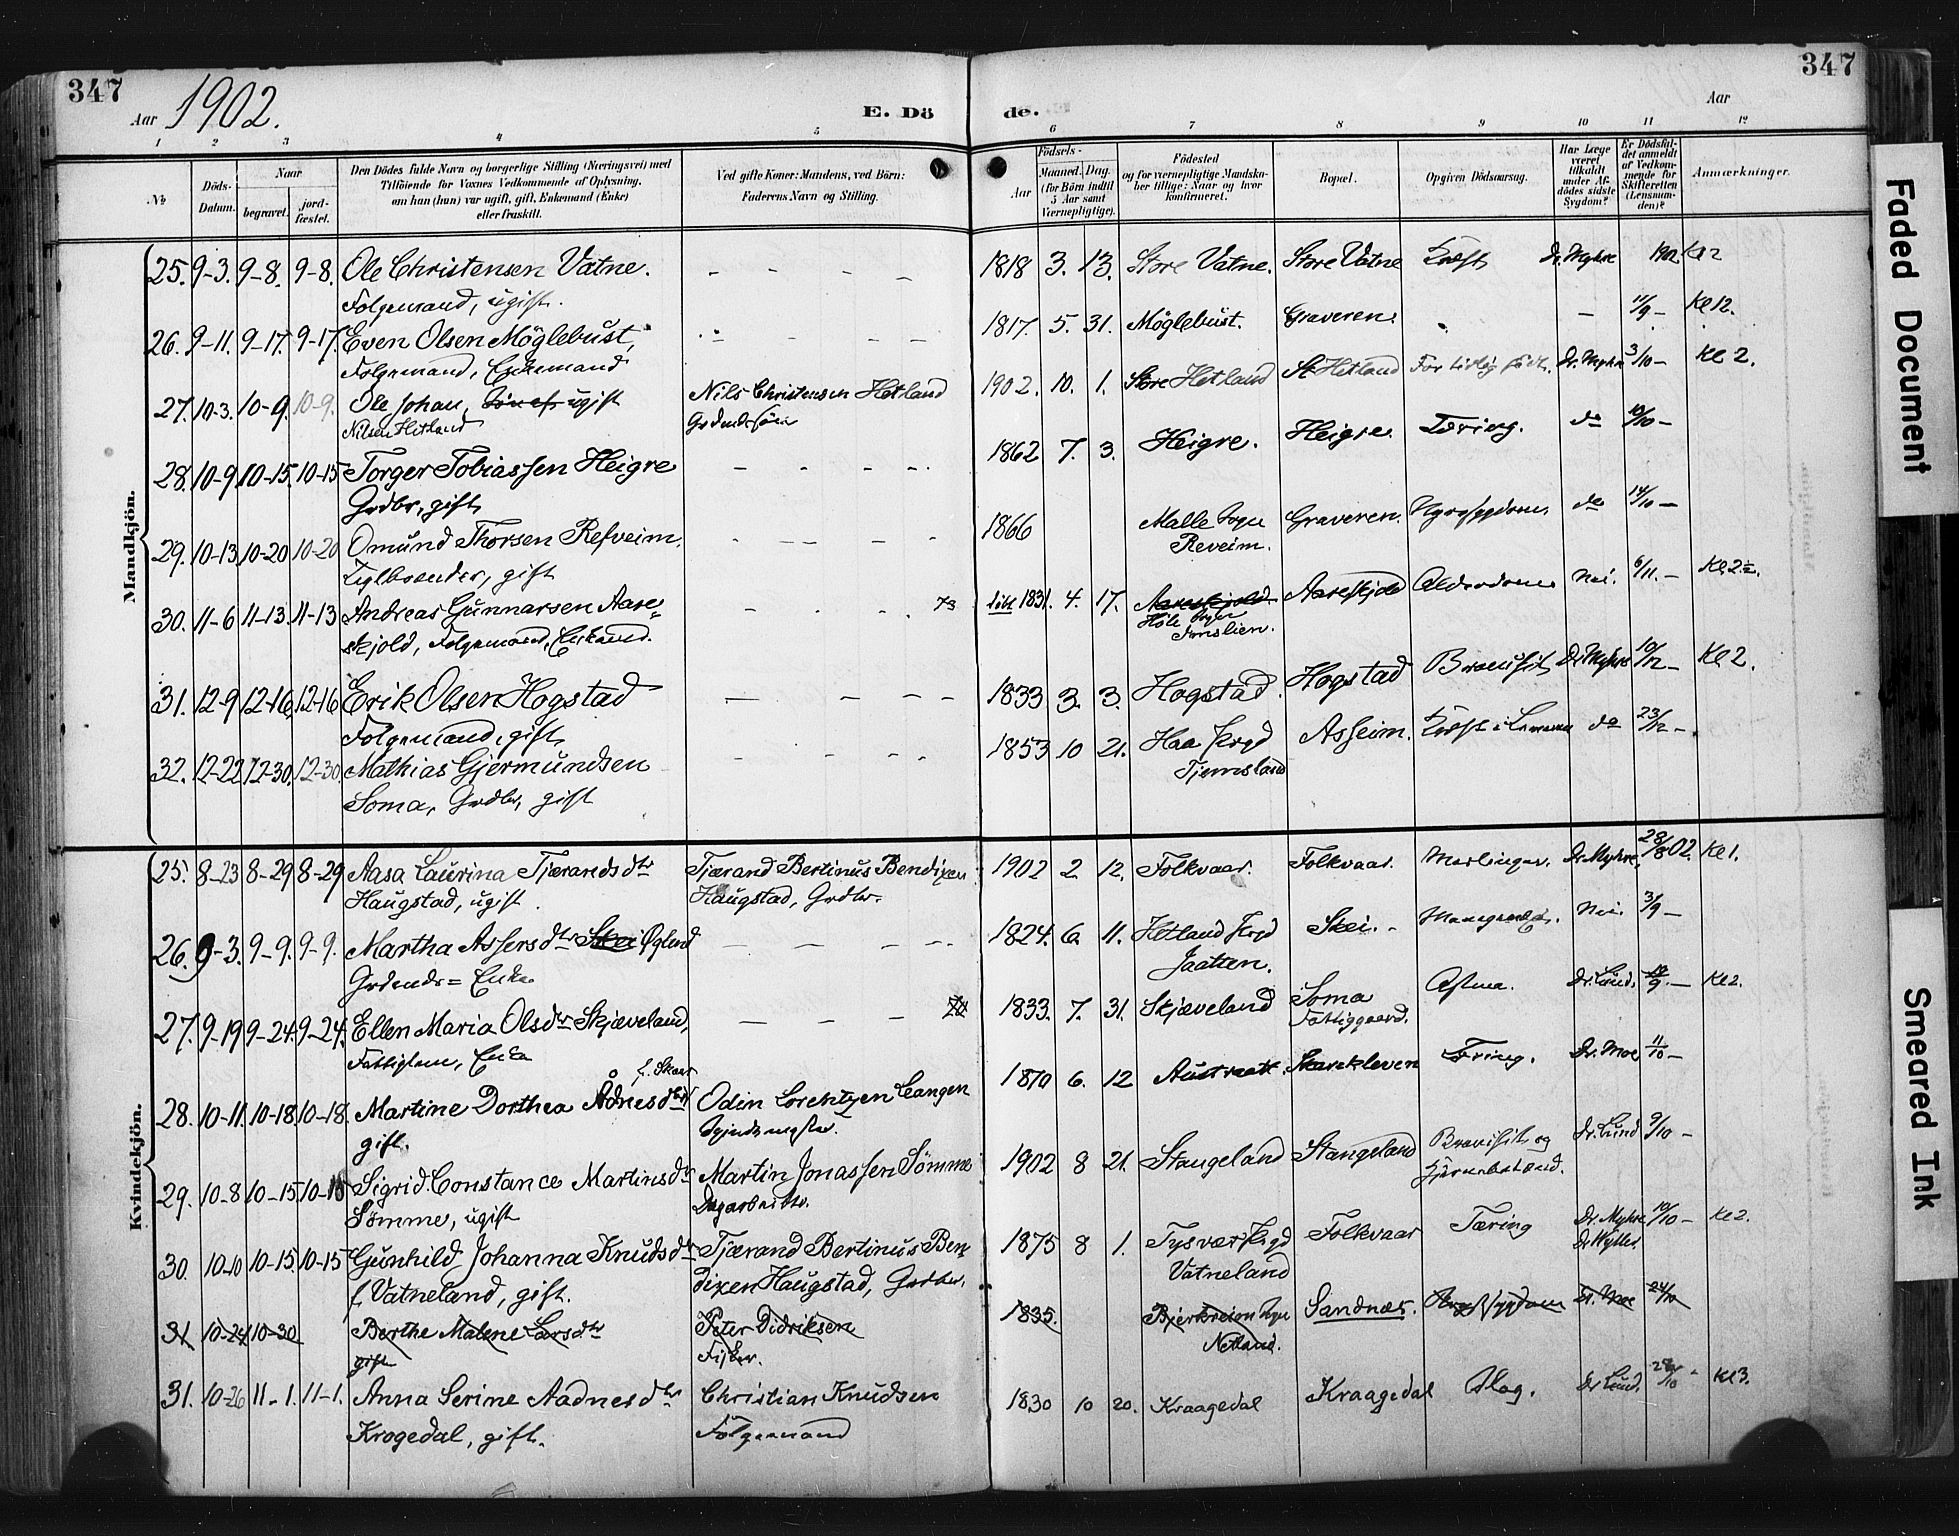 347
347
Aar 1902.
E. Dö de.
Aar
1 2 3 4 5 6 7 8 9 10 11 12
№
Döds-Datum.
Naar
begravet.
jord-fæstet.
Den Dödes fulde Navn og borgerlige Stilling (Næringsvei) med
Tilföiende for Voxnes Vedkommende af Oplysning,
om han (hun) var ugift, gift, Enkemand (Enke)
eller fraskilt.
Ved gifte Koner: Mandens, ved Börn:
Faderens Navn og Stilling.
Födsels-
Aar
Maaned. Dag.
(for Börn indtil
5 Aar samt
Værnepligtige).
Födested
og for værnepligtige Mandskaber tillige: Naar og hvor
konfirmeret.
Bopæl.
Opgiven Dödsaarsag.
Har Læge
været
tilkaldt
under Afdödes sidste
Sygdom?
Er Dödsfaldet anmeldt
af Vedkommende for
Skifteretten
(Lensmanden)?
Anmærkninger.
Mandkjön.
25. 9-3. 9-8. 9-8. Ole Christensen Vatne. - - - - 1818 3. 13. Store Vatne. Store Vatne Kræft Dr. Myhre 1902 Kl 2
Folgemand, ugift.
26. 9-11. 9-17. 9-17. Even Olsen Möglebust, - - - 1817. 5. 31. Möglebust. Graveren. - 11/9 - Kl 12.
Folgemand, Enkemand
27. 10-3. 10-9. 10-9. Ole Johan, ugift Nils Christensen Hetland 1902. 10. 1. Store Hetland St. Hetland For tidlig födt. Dr. Myhre 3/10 - Kl 2.
Nilsen Hetland
28. 10-9. 10-15. 10-15 Torger Tobiassen Heigre - - - - 1862 7. 3. Heigre. Heigre. Tæring. do 10/10 -
Grdbr, gift
29. 10-13. 10-20 10-20 Omund Thorsen Refveim. - - - - 1866 Malle Sogn Graveren. Nyresygdom. do 14/10 -
Reveim.
gift
30. 11-6 11-13. 11-13 Andreas Gunnarsen Aare- - - - 73 1831. 4. 17. Aareskjold Aareskjold Alderdom Nei. 6/11. - Kl. 2½.
skjold, Folgemand, Enkemd. Höle Sogn
31. 12-9 12-16 12-16 Erik Olsen Hogstad - - - - 1833 3. 3. Hogstad. Hogstad Bronchit Dr. Myhre 10/12 - Kl 2.
Folgemand, gift
32. 12-22 12-30. 12-30 Mathias Gjermundsen - - - - 1853 10 21. Haa Prgd Asheim. Kræft i do 23/12 -
Soma, Grdbr, gift Tjemsland
Kvindekjön.
25. 8-23 8-29 8-29 Aasa Laurina Tjærandsdtr Tjærand Bertinus Bendixen 1902 2 12. Folkvaar. Folkvaar. Meslinger. Dr. Myhre, 28/8 02. Kl 1.
Haugstad, ugift. Haugstad, Grdbr.
26. 9-3. 9-9. 9-9. Martha Assersdtr Skei Oglend - - - - 1824. 6. 11. Hetland Prgd Skei. Nei. 3/9 -
Grdmds = Enke Jaatten.
27. 9-19 9-24. 9-24. Ellen Maria Olsdtr Skjæveland, - - - 1833. 7. 31. Skjæveland Soma Astma. Dr. Lund. 19/9 - Kl 2.
Fattiglem, Enke Fattiggaard.
f. Skaar
28. 10-11. 10-18 10-18. Martine Dorthea Ådnesdtr Odin Lorentzen Langen 1870 6. 12 Austraatt. Skarekleven Tæring. Dr. Moe 11/10 -
gift.
29. 10-8 10-15 10-15 Sigrid Constance Martinsdtr Martin Jonassen Sömme 1902 8 21. Stangeland Stangeland Bronchit og Dr. Lund 9/10 -
Sömme, ugift Dagarbeider. Hjernebetænd.
30. 10-10 10-15. 10-15 Gunhild Johanna Knudsdtr Tjærand Bertinus Ben- 1875 8 1. Tysvær Prgd Folkvaar Tæring Dr. Myhre 10/10 - Kl 2.
f. Vatneland, gift. dixen Haugstad, Grdbr. Vatneland
31 10-24 10-30 Berthe Malene Larsdtr Peter Didriksen 1835. Bjerkreim Sogn Sandnæs. Dr. Moe 24/10
gift Fisker. Netland.
31. 10-26 11-1. 11-1. Anna Serine Aadnesdtr Christian Knudsen 1830 10 20. Kraagedal Kraagedal Slag. Dr Lund. 28/10 - Kl 3.
Krogedal, gift. Folgemand
Faded Document
Smeared Ink